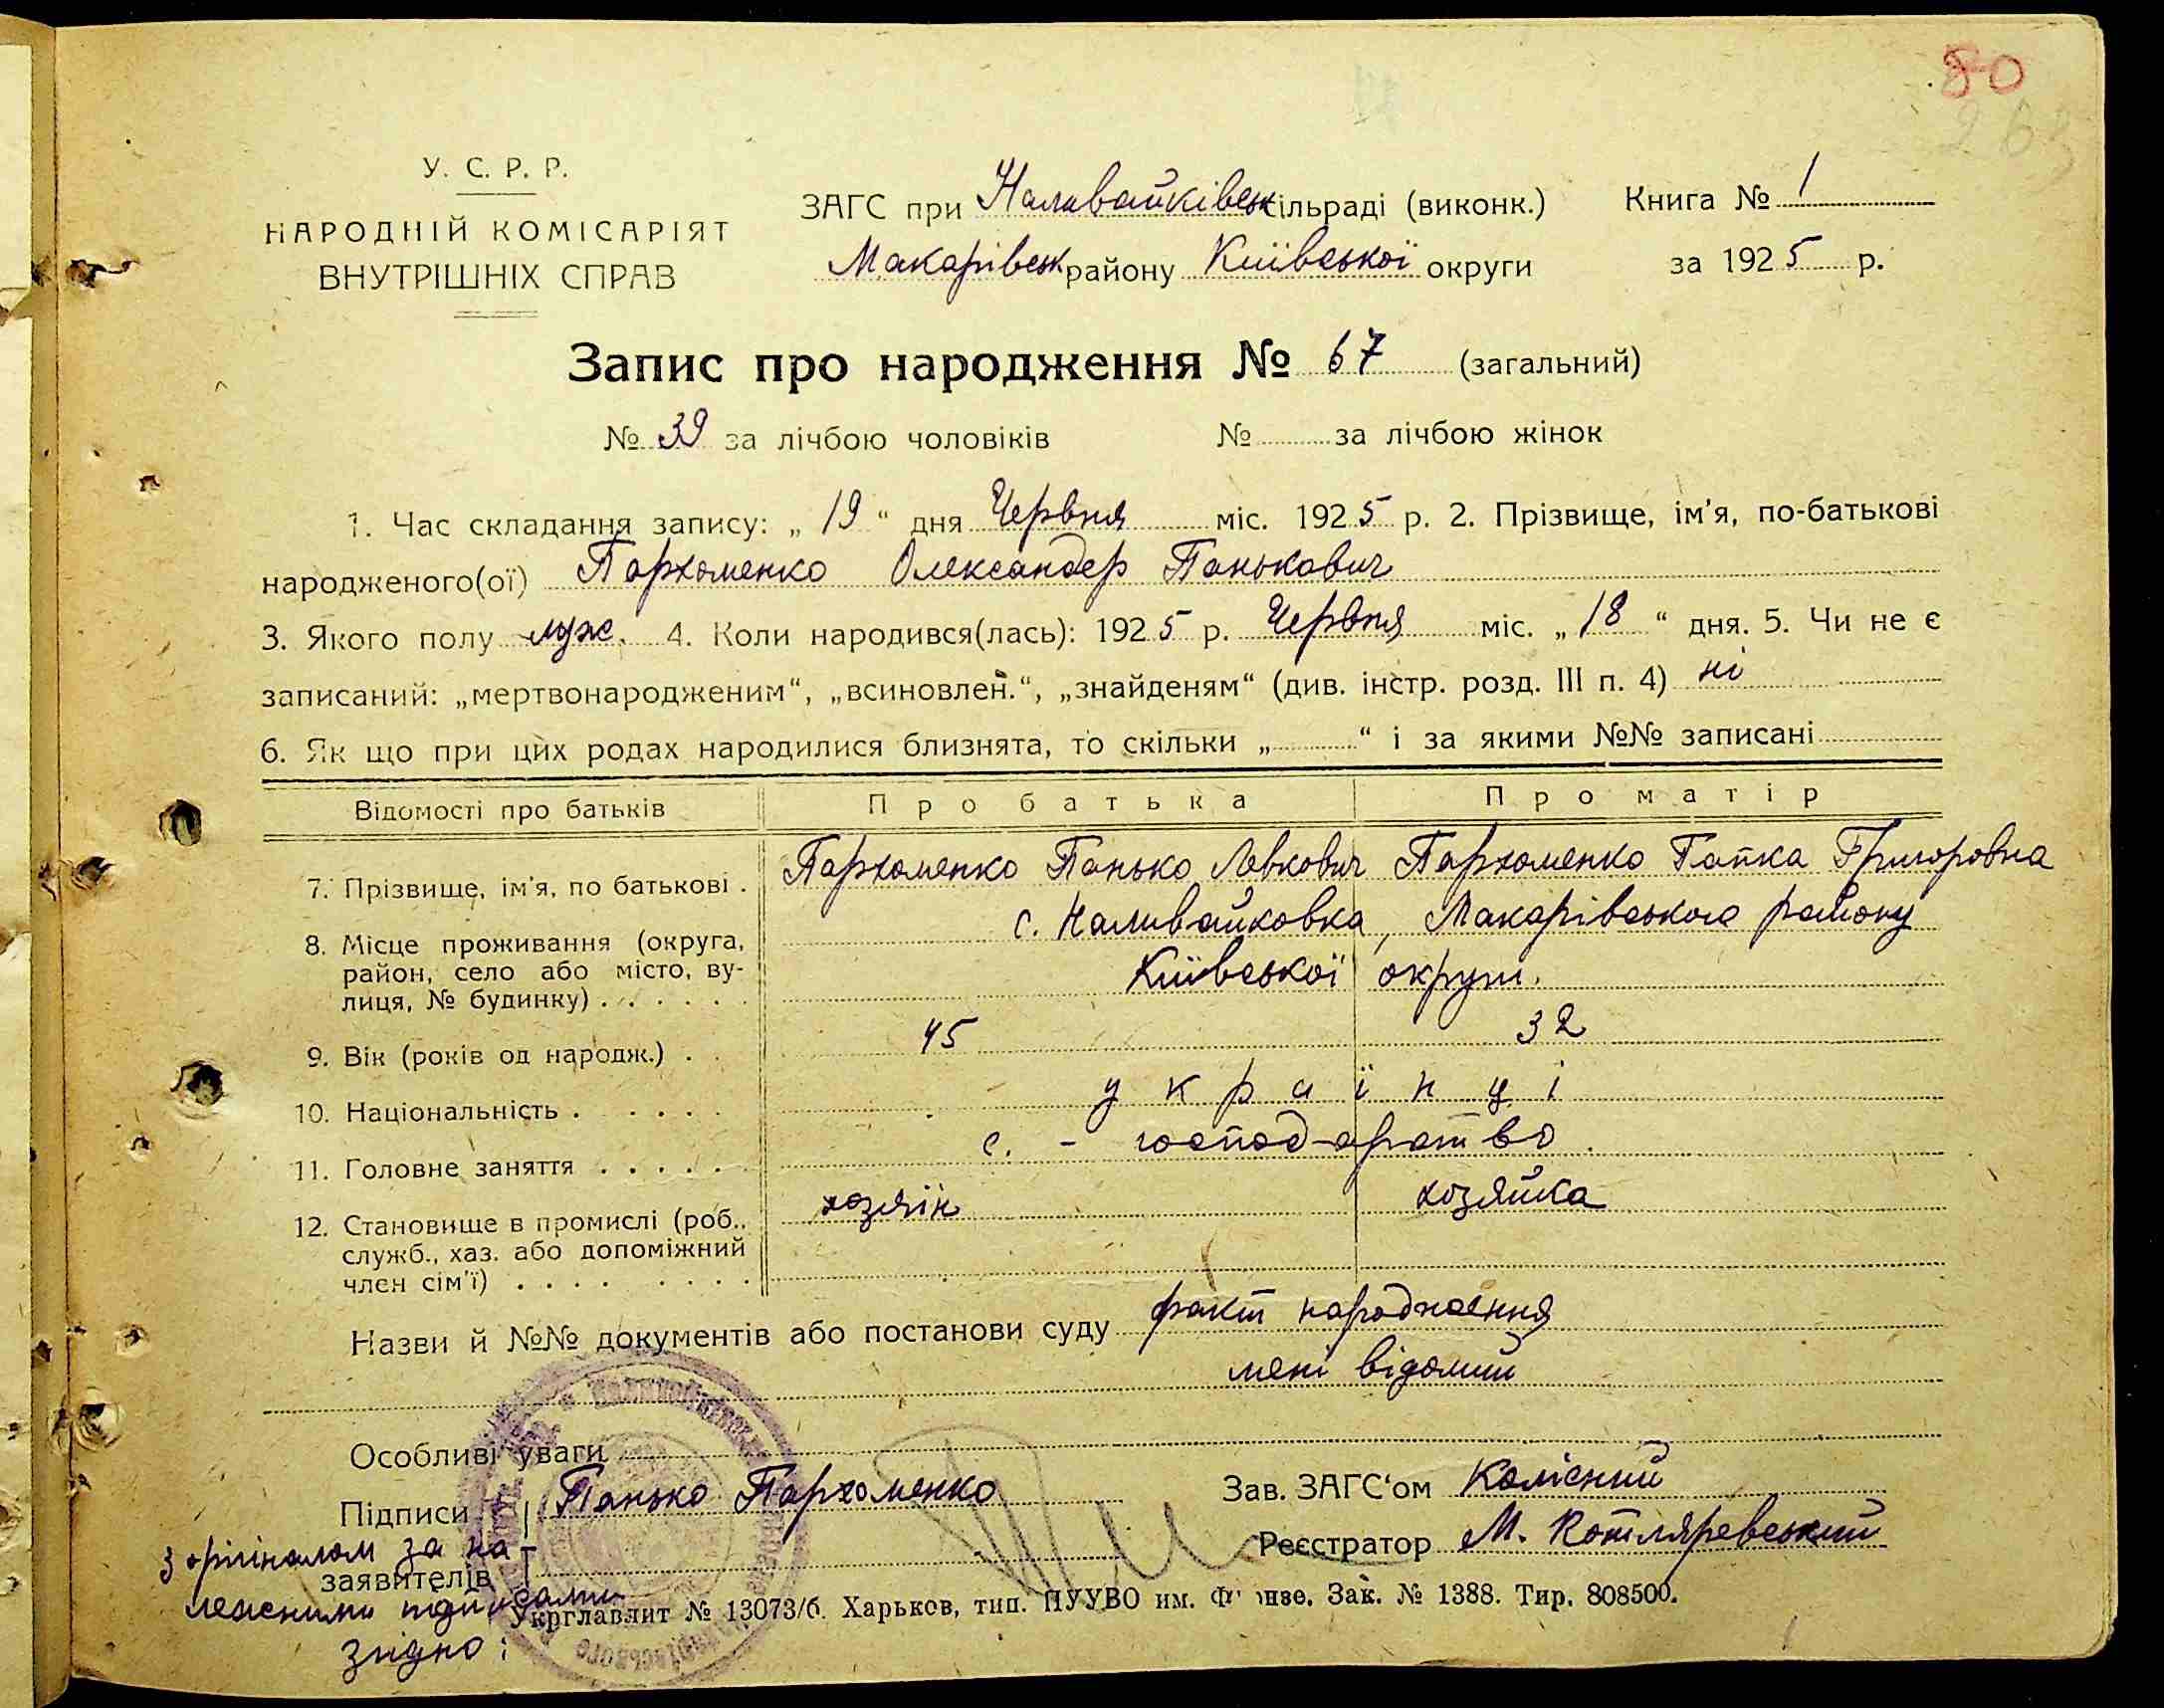 80
263
У. С. Р. Р.
НАРОДНІЙ КОМІСАРІЯТ
ВНУТРІШНІХ СПРАВ
ЗАГС при Наливайківськ сільраді (виконк.)
Макарівськ району Київської округи
Книга № 1
за 1925 р.
Запис про народження № 67 (загальний)
№ 39 за лічбою чоловіків № за лічбою жінок
1. Час складання запису: „ 19 “ дня Червня міс. 1925 р. 2. Прізвище, ім'я, по-батькові
народженого(ої) Пархоменко Олександер Панькович
3. Якого полу муж. 4. Коли народився(лась): 1925 р. Червня міс. „ 18 “ дня. 5. Чи не є
записаний: „мертвонародженим“, „всиновлен.“, „знайденям“ (див. інстр. розд. III п. 4) ні
6. Як що при цих родах народилися близнята, то скільки „ “ і за якими №№ записані
Відомості про батьків Про батька Про матір
7. Прізвище, ім'я, по батькові . Пархоменко Панько Левкович Пархоменко Гапка Григоровна
8. Місце проживання (округа, с. Наливайковка, Макарівського району
район, село або місто, ву-
лиця, № будинку) . . . . . . Київської округи.
9. Вік (років од народж.) . . 45 32
10. Національність . . . . . українці
11. Головне заняття . . . . . с. - господарство
12. Становище в промислі (роб., хозяїн хозяйка
служб., хаз. або допоміжний
член сім'ї) . . . . . . . .
Назви й №№ документів або постанови суду факт народження
мені відомий
Особливі уваги
Підписи Панько Пархоменко
заявителів
Зав. ЗАГС'ом Колісний
Реєстратор М. Котляревський
З оригіналом за на-
лежними підписами
згідно:
Укрглавлит № 13073/б. Харьков, тип. ПУУВО им. Фрунзе. Зак. № 1388. Тир. 808500.